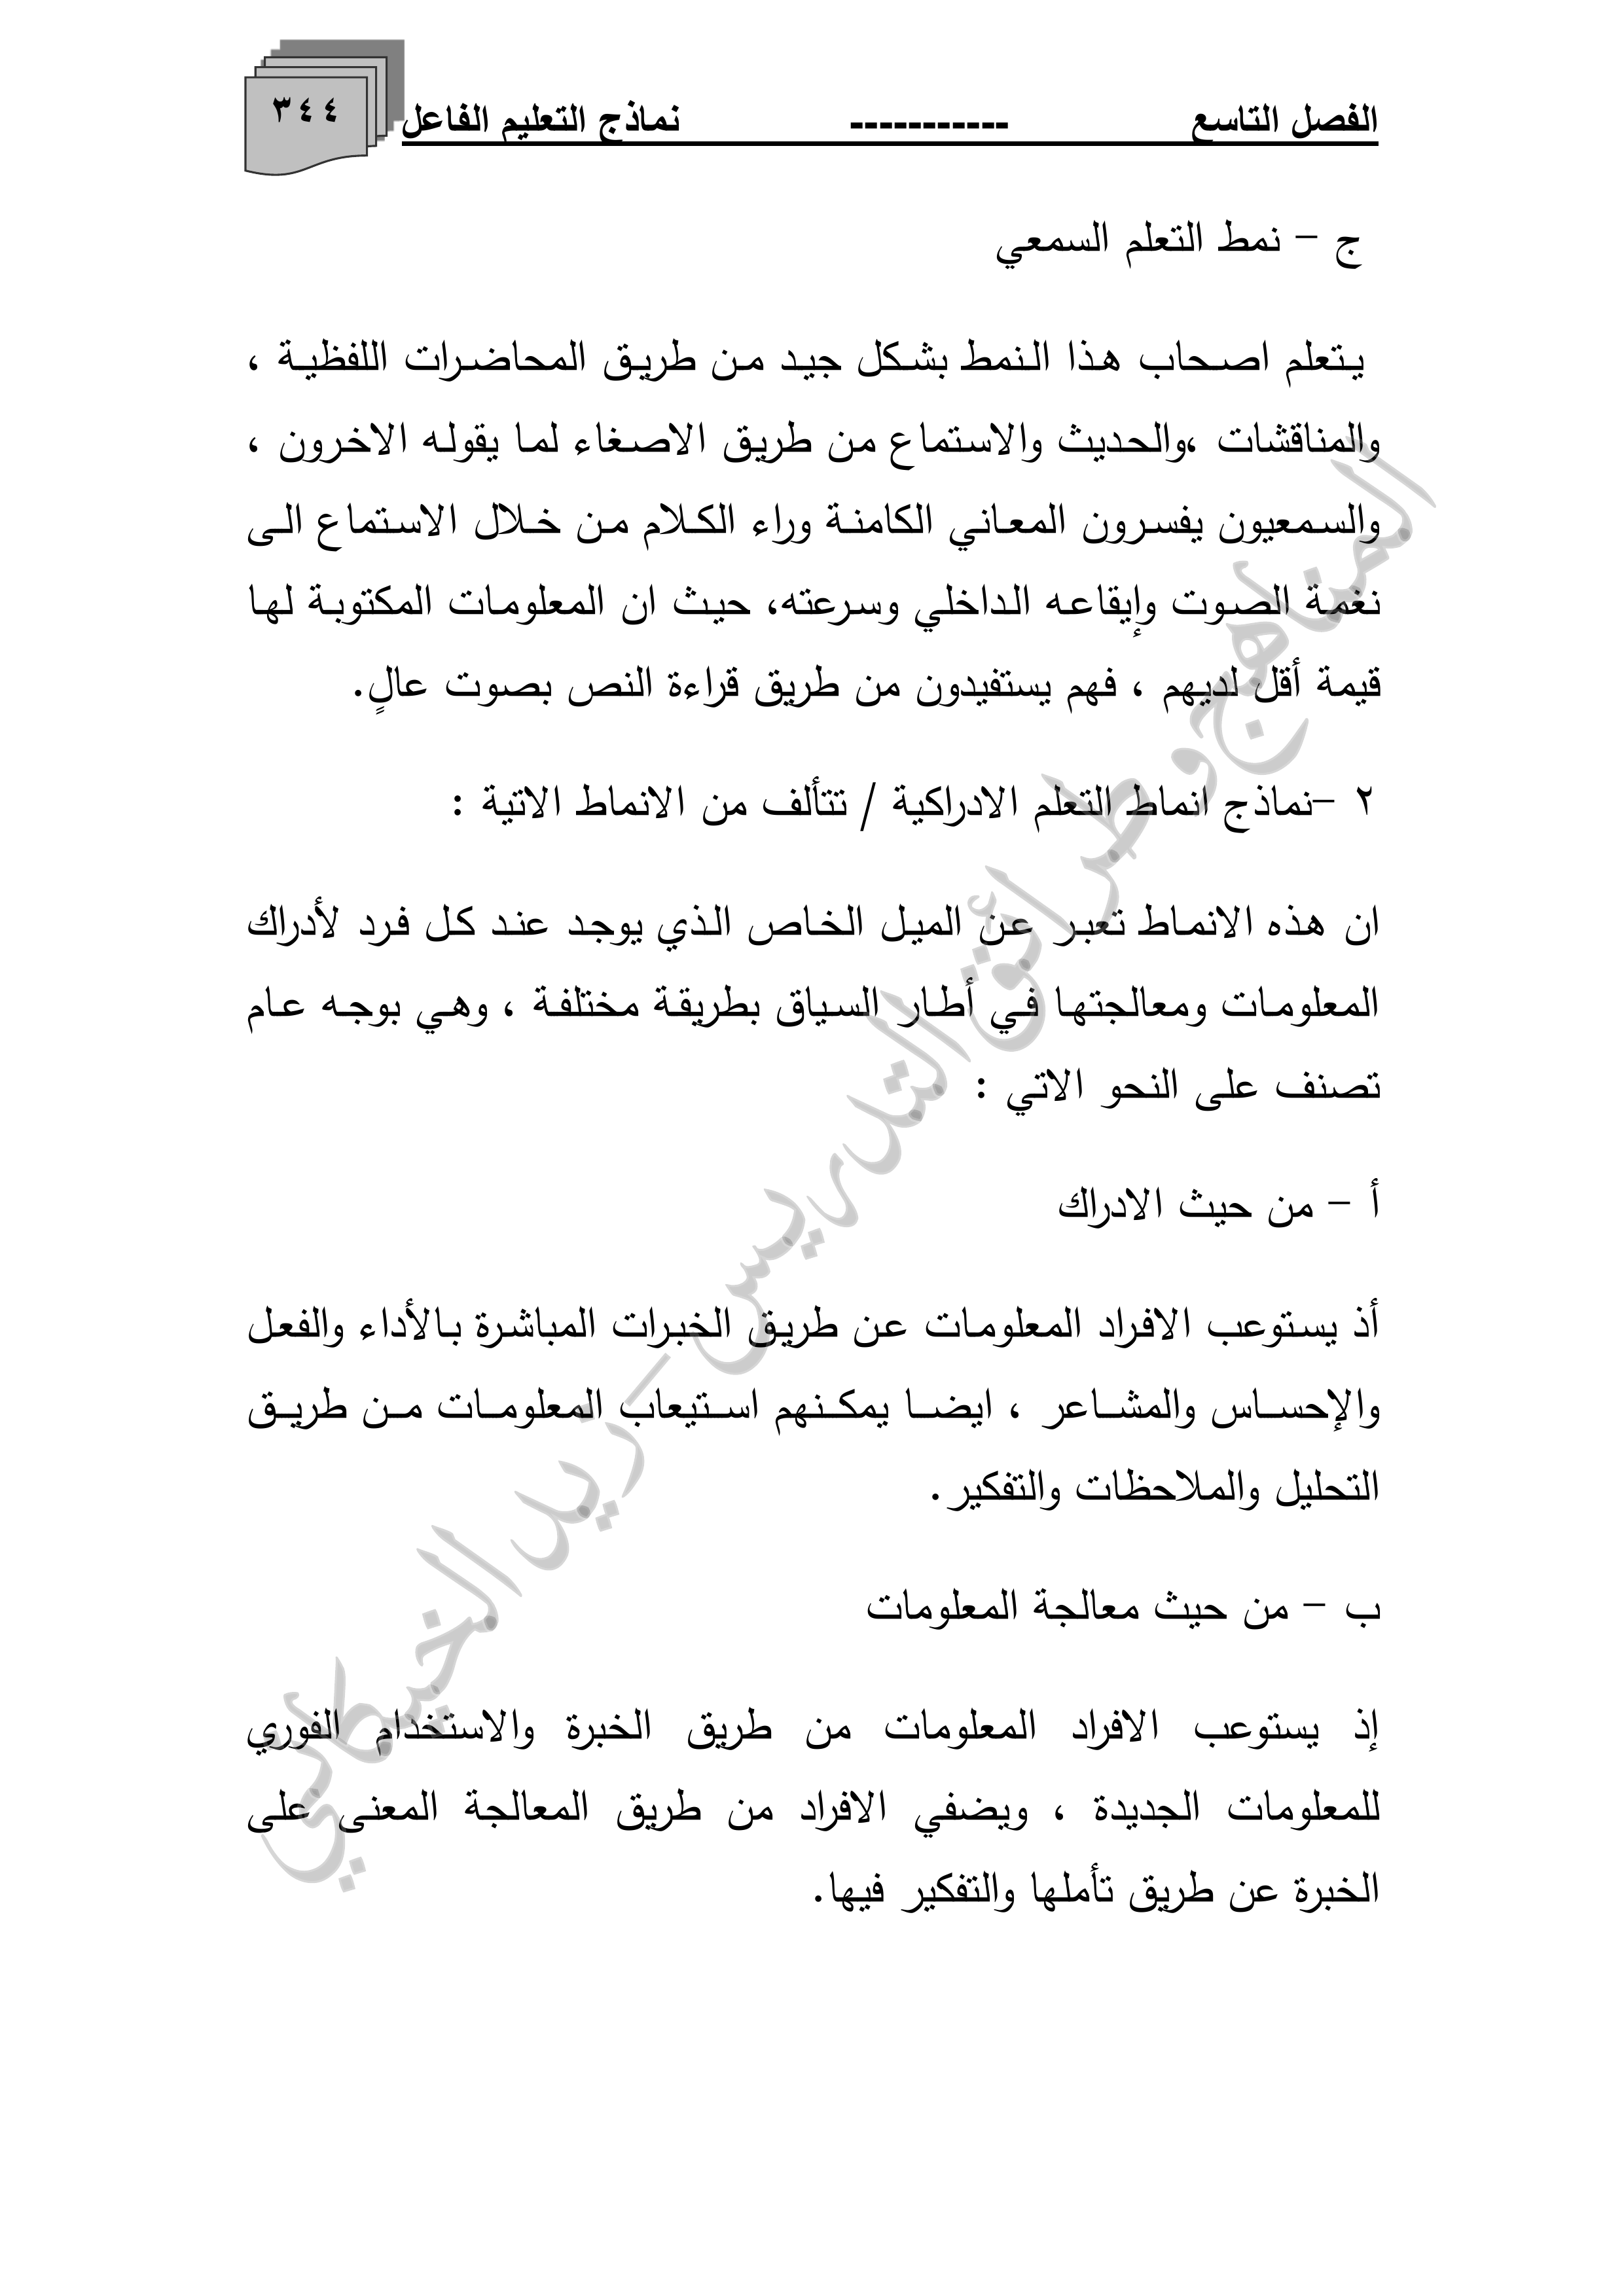 الفصل التاسع ----------- نماذج التعليم الفاعل ٣٤٤
ج – نمط التعلم السمعي
يتعلم اصحاب هذا النمط بشكل جيد من طريق المحاضرات اللفظية ،
والمناقشات ،والحديث والاستماع من طريق الاصغاء لما يقوله الاخرون ،
والسمعيون يفسرون المعاني الكامنة وراء الكلام من خلال الاستماع الى
نغمة الصوت وإيقاعه الداخلي وسرعته، حيث ان المعلومات المكتوبة لها
قيمة أقل لديهم ، فهم يستفيدون من طريق قراءة النص بصوت عالٍ.
٢ –نماذج انماط التعلم الادراكية / تتألف من الانماط الاتية :
ان هذه الانماط تعبر عن الميل الخاص الذي يوجد عند كل فرد لأدراك
المعلومات ومعالجتها في أطار السياق بطريقة مختلفة ، وهي بوجه عام
تصنف على النحو الاتي :
أ – من حيث الادراك
أذ يستوعب الافراد المعلومات عن طريق الخبرات المباشرة بالأداء والفعل
والإحساس والمشاعر ، ايضا يمكنهم استيعاب المعلومات من طريق
التحليل والملاحظات والتفكير.
ب – من حيث معالجة المعلومات
إذ يستوعب الافراد المعلومات من طريق الخبرة والاستخدام الفوري
للمعلومات الجديدة ، ويضفي الافراد من طريق المعالجة المعنى على
الخبرة عن طريق تأملها والتفكير فيها.
المناهج وطرائق التدريس – زيد الخيكاني